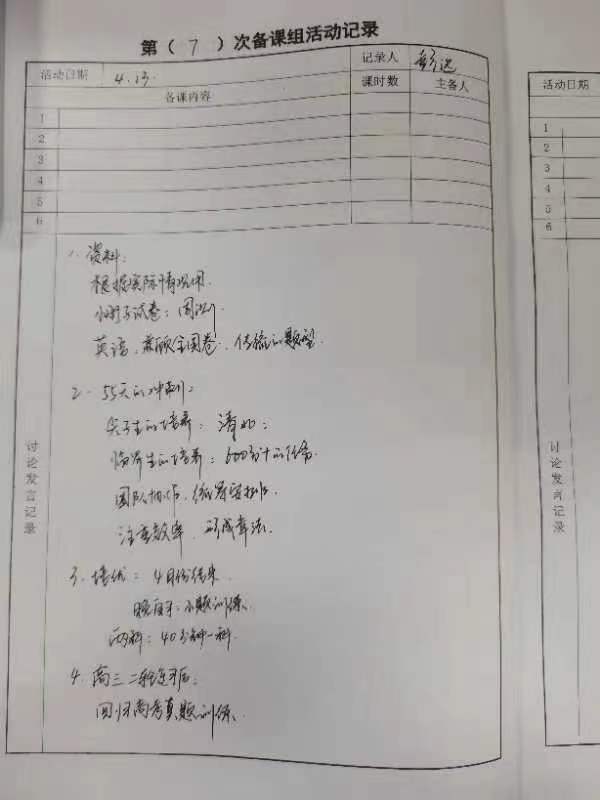 第（7）次备课组活动记录
活动日期 4.13. 记录人
备课内容 课时数 主备人
1
2
3
4
5
6
讨论发言记录
1、资料：
根据实际情况用.
小册子试卷：周测
英语，兼顾全国卷，传统的题型
2. 55天的冲刺：
尖子生的培养：清北：
临界生的培养：600分计的任务
团队协作，统筹安排.
注意效率，形成算法.
3、培优：4月份结束.
晚自习：小题训练.
两科：40分钟一科.
4. 高三二轮
回归高考真题训练.
活动日期
1
2
3
4
5
6
讨论发言记录